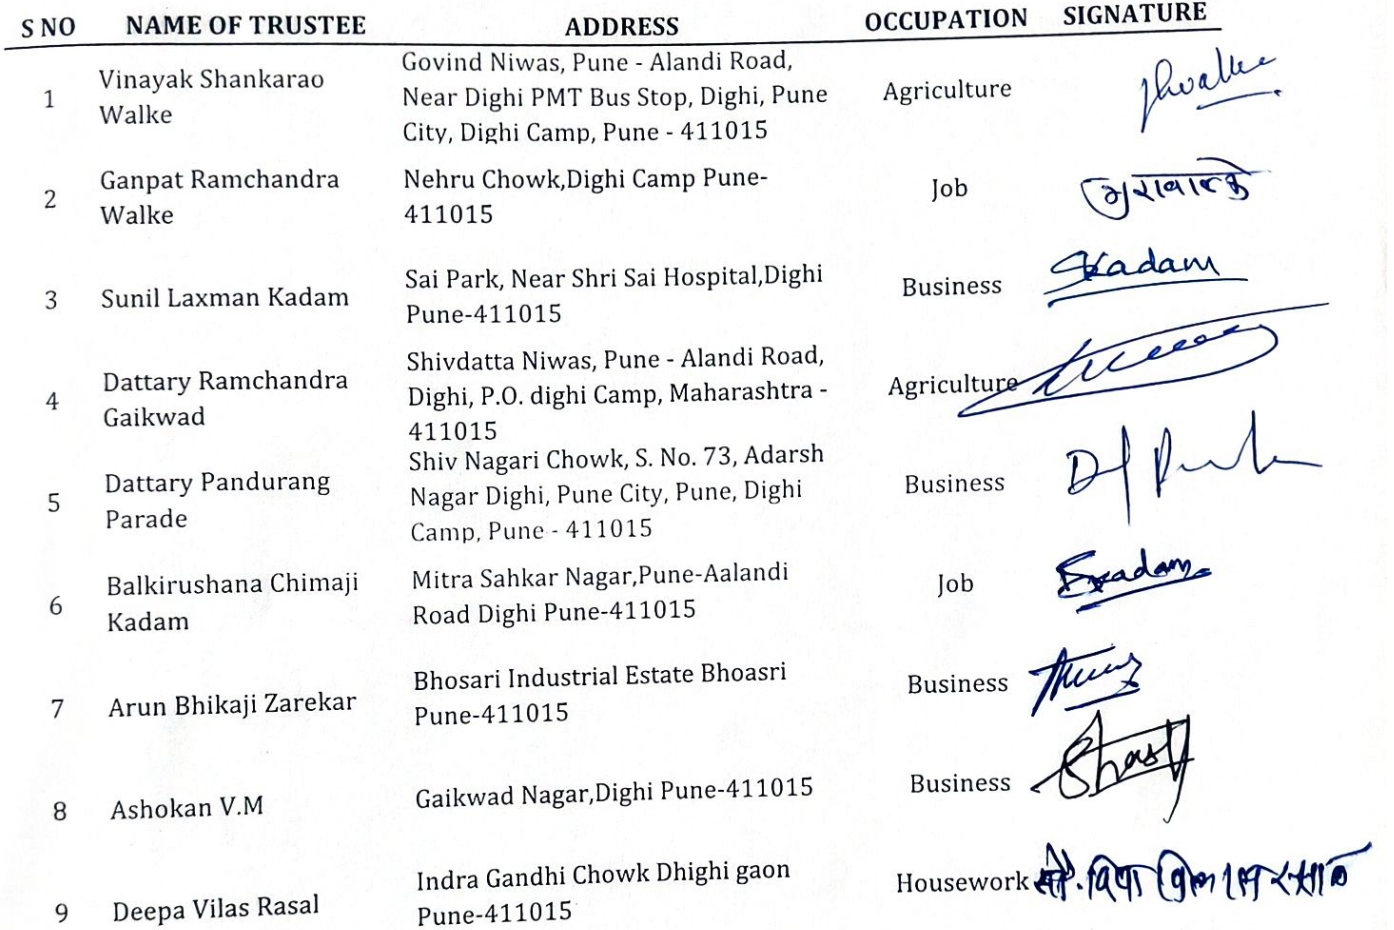 S NO NAME OF TRUSTEE ADDRESS OCCUPATION SIGNATURE
1 Vinayak Shankarao Walke Govind Niwas, Pune - Alandi Road, Near Dighi PMT Bus Stop, Dighi, Pune City, Dighi Camp, Pune - 411015 Agriculture
2 Ganpat Ramchandra Walke Nehru Chowk,Dighi Camp Pune-411015 Job
3 Sunil Laxman Kadam Sai Park, Near Shri Sai Hospital,Dighi Pune-411015 Business Skadam
4 Dattary Ramchandra Gaikwad Shivdatta Niwas, Pune - Alandi Road, Dighi, P.O. dighi Camp, Maharashtra - 411015 Agriculture
5 Dattary Pandurang Parade Shiv Nagari Chowk, S. No. 73, Adarsh Nagar Dighi, Pune City, Pune, Dighi Camp, Pune - 411015 Business
6 Balkirushana Chimaji Kadam Mitra Sahkar Nagar,Pune-Aalandi Road Dighi Pune-411015 Job
7 Arun Bhikaji Zarekar Bhosari Industrial Estate Bhoasri Pune-411015 Business
8 Ashokan V.M Gaikwad Nagar,Dighi Pune-411015 Business
9 Deepa Vilas Rasal Indra Gandhi Chowk Dhighi gaon Pune-411015 Housework